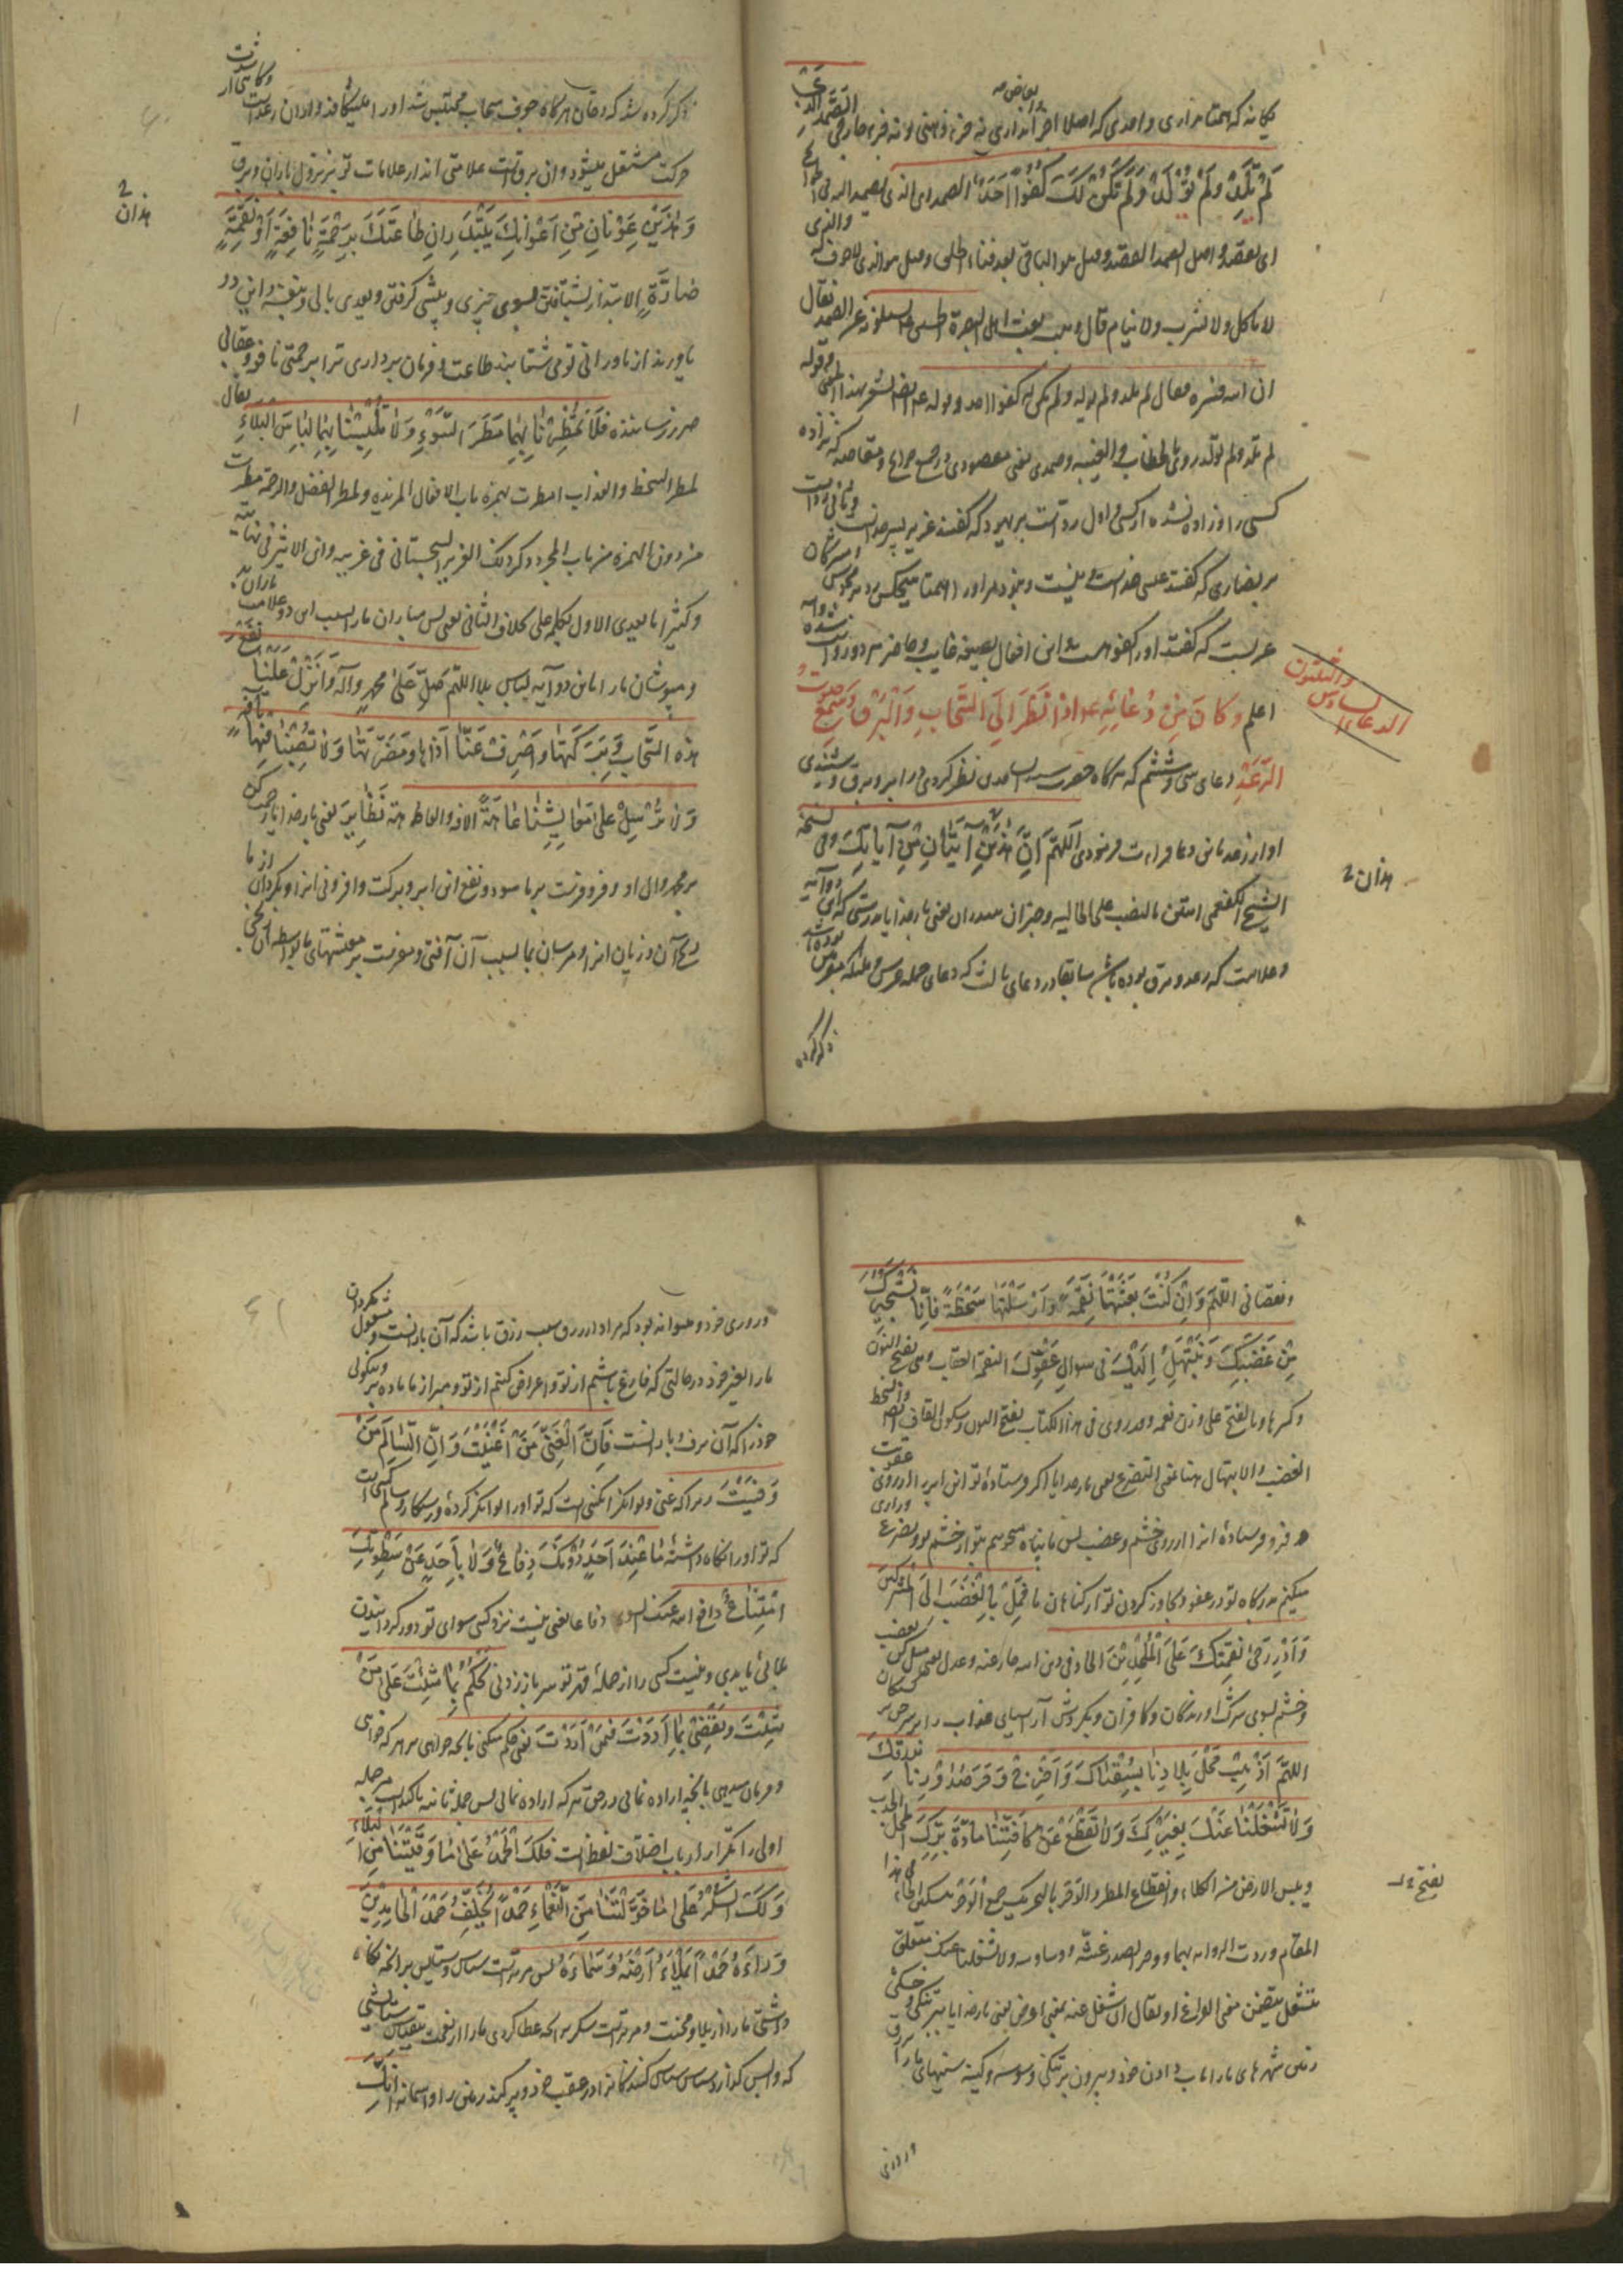 یگانه که همتا نداری واحدی که اصلا اجزا نداری نه جزء ذهنی و نه جزء خارجی الصَّمَد الَّذِی
لَمْ یَلِدْ وَلَمْ یُوْلَدْ وَلَمْ یَکُنْ لَکَ کُفُوًا اَحَدٌ الصمد ای الذی یصمد الیه فی
ای یقصد و اصل الصمد القصد و قیل هو الباقی بعد فناء الخلق و قیل هو الذی لا جوف له
لا یاکل ولا یشرب ولا ینام قال وهب بعث اهل البصرة الی یسئلونه عن الصمد فقال
ان الله فسره فقال لم یلد ولم یولد ولم یکن له کفوا احد و قوله
لم تلد ولم تولد روی بالخطاب والغیبه وصمدی یعنی مقصودی در جمیع و مقاصد که نزاده
کسی را و زاده نشده از کسی و اول رد است بر یهود که گفتند عزیر پسر خداست
بر نصاری که گفتند عیسی خداست و نیست و نبود مر او را همتا هیچکس
عربست که گفتند او را کفو هست و این افعال بصیغه غایب و حاضر هر دو روایت
اعلم وَکَانَ مِنْ دُعَائِهِ ع اِذَا نَظَرَ اِلَی السَّحَابِ وَالْبَرْقِ وَسَمِعَ صَوْتَ
الدعاء السادس والثلثون
الرَّعْدِ دعای سی و ششم که هرگاه حضرت سید الساجدین نظر کردی در ابر و برق و شنیدی
آواز رعد این دعا قراءت فرمودی اَللّهُمَّ اِنَّ هٰذَیْنِ آیَتَانِ مِنْ آیَاتِکَ وفی نسخة
هذان 2
الشیخ الکفعمی آیتین بالنصب علی الحالیه وخبر ان یعنی بار خدایا بدرستی که این دو آیه
وعلامت که رعد و برق بوده باشد سابقا در دعای ثالث که دعای حمله عرش و ملئکه مقربین
ذکر کرده
ذکر کرده شد که دخان هرگاه در جوف سحاب محتبس شد او را می‌شکافد و از آن رعد است
حرکت مشتعل میشود و آن برق است علامتی‌اند از علامات تو بر نزول باران و برق
هذان 2
وَهٰذَیْنِ عَوْنَانِ مِنْ اَعْوَانِکَ یَبْتَدِرَانِ طَاعَتَکَ بِرَحْمَةٍ نَافِعَةٍ اَوْ نَقِمَةٍ
ضَارَّةٍ الابتدار بشتافتن بسوی چیزی و پیشی گرفتن و یعدی بالی و بنفسه و این دو
یاورند از یاوران تو می شتابند طاعت و فرمان برداری ترا برحمتی نافع و عقابی
ضرر رساننده فَلَا تُمْطِرْنَا بِهِمَا مَطَرَ السَّوْءِ وَلَا تُلْبِسْنَا بِهِمَا لِبَاسَ الْبَلَاءِ یقال
لمطر السخط والعذاب امطرت بهمزه باب الافعال المزیده ولمطر الفضل والرحمة مطرت
من دون الهمزه من باب المجرد ذکر ذلک العزیز السجستانی فی غریبه وابن الاثیر فی نهایته
وکثیرا ما یعدی الاول بکلمه علی بخلاف الثانی یعنی پس مباران ما را بسبب این دو علامت باران
ومپوشان ما را باین دو آیه لباس بلا اللّهُمَّ صَلِّ عَلٰی مُحَمَّدٍ وَآلِهِ وَاَنْزِلْ عَلَیْنَا نَفْعَ
هٰذِهِ السَّحَابِ وَبَرَکَتَهَا وَاصْرِفْ عَنَّا اَذَاهَا وَمَضَرَّتَهَا وَلَا تُصِبْنَا فِیهَا بِآفَةٍ
وَلَا تُرْسِلْ عَلٰی مَعَایِشِنَا عَاهَةً الآفه والعاهه متناظران یعنی بار خدایا رحمت کن
بر محمد وال او و فرو فرست بر ما سود و نفع این ابر و برکت و افزونی او و بگردان از ما
رنج آن و زیان او و مرسان بما بسبب آن آفتی و مفرست بر معیشتهای ما بواسطه آن
ونقصانی اللّهُمَّ وَاِنْ کُنْتَ بَعَثْتَهَا نَقِمَةً وَاَرْسَلْتَهَا سَخْطَةً فَاِنَّا نَسْتَجِیرُکَ
مِنْ غَضَبِکَ وَنَبْتَهِلُ اِلَیْکَ فِی سُوَالِ عَفْوِکَ النقمة العقاب وهی بفتح النون
وکسرها وبالفتح علی وزن نعمه وقد روی فی هذا الکتاب بفتح النون وسکون القاف ایضا والسخط
الغضب والابتهال هنا بمعنی التضرع یعنی بار خدایا اگر فرستاده تو این ابر را از روی عقوبت
و فرو فرستاده او را از روی خشم و غضب پس ما پناه میجوییم بتو از خشم تو و تضرع وزاری
میکنیم بدرگاه تو در عفو و تجاوز کردن تو از گناهان ما فَمِلْ بِالْغَضَبِ اِلَی الْمُشْرِکِینَ
وَاَدِرْ رَحٰی نَقِمَتِکَ عَلَی الْمُلْحِدِیْنَ الحاد فی دین الله حاد عنه وعدل یعنی میل کن بغضب
وخشم بسوی شرک آورندگان و کافران و بگردش آر آسیای عذاب را بر سر
اللّهُمَّ اَذْهِبْ مَحْلَ بِلَادِنَا بِسُقْیَاکَ وَاَخْرِجْ وَحَرَ صُدُوْرِنَا بِرِزْقِکَ
وَلَا تَشْغَلْنَا عَنْکَ بِغَیْرِکَ وَلَا تَقْطَعْ عَنْ کَافَّتِنَا مَادَّةَ بِرِّکَ المحل الجدب
ویبس الارض من الکلاء وانقطاع المطر والوحر بالتحریک
بفتح
المقام وردت الروایه بهما ووحر الصدر غشه ووساوسه ولا تشغلنا عنک متعلق
تشغل بتضمین معنی الفراغ او یقال شغل عنه بمعنی اعرض یعنی بار خدایا ببر تنگی و خشکی
زمین شهرهای ما را بآب دادن خود و بیرون بر تنگی و وسوسه و کینه سینهای ما را
وروزی
وروزی خود و میتواند بود که مراد از رزق سبب رزق باشد که آن باران است و مشغول مگردان
ما را بغیر خود در حالتی که فارغ باشیم از تو و اعراض کنیم از تو و مبر از ما ماده بر و نیکوئی
خود را که آن برف و باران است فَاِنَّ الْغَنِیَّ مَنْ اَغْنَیْتَ وَاِنَّ السَّالِمَ مَنْ
وَقَیْتَ زیرا که غنی و توانگر آنکسی است که تو او را توانگر کرده و رستگار و سالم کسی است
که تو او را نگاه داشته مَا عِنْدَ اَحَدٍ دُوْنَکَ دِفَاعٌ وَلَا بِاَحَدٍ عَنْ سَطْوَتِکَ
امْتِنَاعٌ دافع الله عنک السوء دفاعا یعنی نیست نزد کسی سوای تو دور گردانیدن
بلائی یا بدی و نیست کسی را از حمله قهر تو سر باز زدنی تَحْکُمُ بِمَا شِئْتَ عَلٰی مَنْ
شِئْتَ وَتَقْضِیْ بِمَا اَرَدْتَ فِیْمَنْ اَرَدْتَ یعنی حکم میکنی بآنچه خواهی بر هر که خواهی
وفرمان میدهی بآنچه اراده نمائی در حق هر که اراده نمائی پس جمله ثانیه تاکید است مر جمله
اولی را تکرار از باب اختلاف لفظ است فَلَکَ الْحَمْدُ عَلٰی مَا وَقَیْتَنَا مِنَ الْبَلَاءِ
وَلَکَ الشُّکْرُ عَلٰی مَا خَوَّلْتَنَا مِنَ النَّعْمَاءِ حَمْدًا یُخَلِّفُ حَمْدَ الْحَامِدِیْنَ
وَرَاءَهُ حَمْدًا یَمْلَاءُ اَرْضَهُ وَسَمَاءَهُ پس مر ترا است سپاس و ستایش بر آنچه نگاه
داشتی ما را از بلا و محنت و مر ترا است شکر بر آنچه عطا کردی ما را از نعمت
که واپس گذارد سپاس سپاس کنندگان را در عقب خود و پر کند زمین را و آسمان را اِنَّکَ